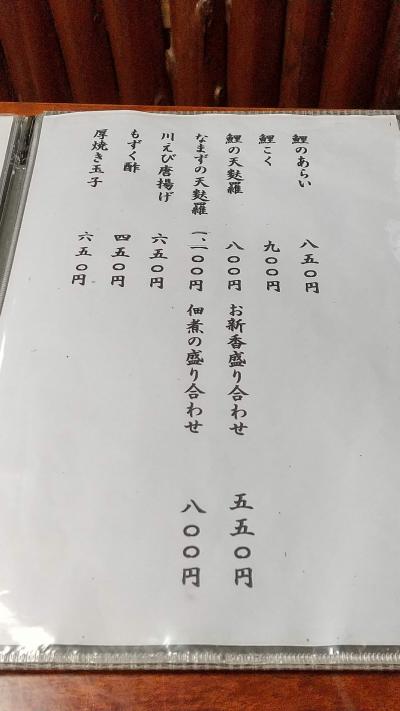 鯉のあらい 八五〇円
鯉こく 九〇〇円
鯉の天麩羅 八〇〇円
なまずの天麩羅 一、一〇〇円
川えび唐揚げ 六五〇円
もずく酢 四五〇円
厚焼き玉子 六五〇円
お新香盛り合わせ 五五〇円
佃煮の盛り合わせ 八〇〇円